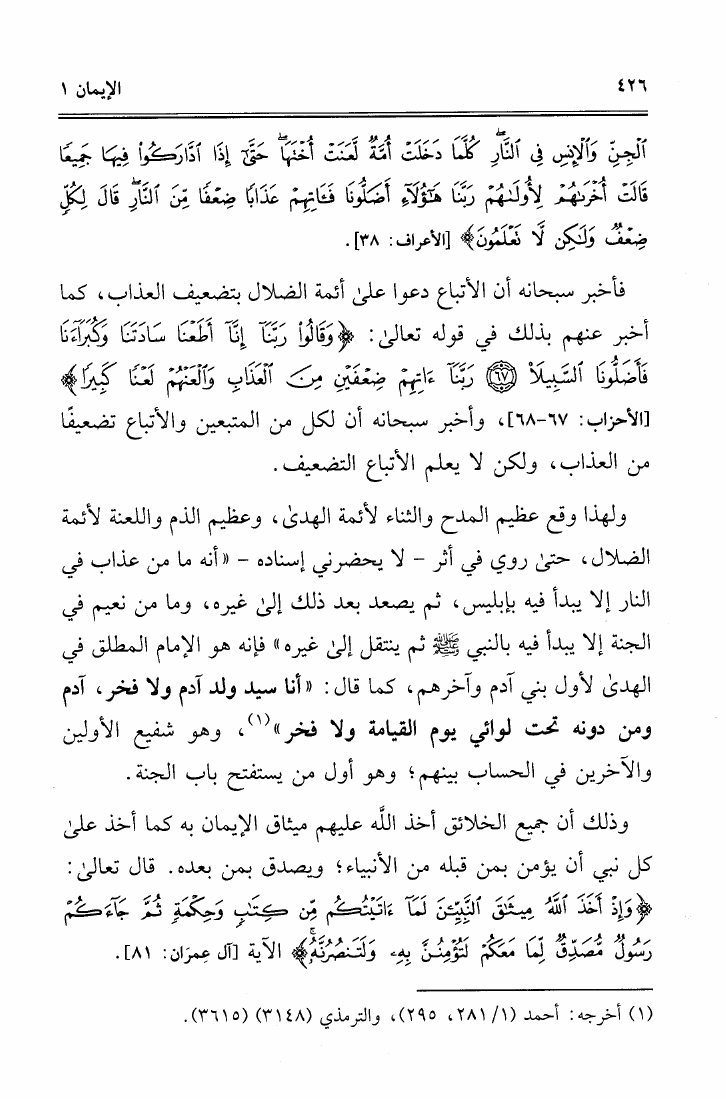 ٤٢٦ الإيمان ١
ٱلۡجِنِّ وَٱلۡإِنسِ فِي ٱلنَّارِۖ كُلَّمَا دَخَلَتۡ أُمَّةٞ لَّعَنَتۡ أُخۡتَهَاۖ حَتَّىٰٓ إِذَا ٱدَّارَكُواْ فِيهَا جَمِيعٗا
قَالَتۡ أُخۡرَىٰهُمۡ لِأُولَىٰهُمۡ رَبَّنَا هَٰٓؤُلَآءِ أَضَلُّونَا فَـَٔاتِهِمۡ عَذَابٗا ضِعۡفٗا مِّنَ ٱلنَّارِۖ قَالَ لِكُلّٖ
ضِعۡفٞ وَلَٰكِن لَّا تَعۡلَمُونَ﴾ [الأعراف: ٣٨].
فأخبر سبحانه أن الأتباع دعوا علىٰ أئمة الضلال بتضعيف العذاب، كما
أخبر عنهم بذلك في قوله تعالىٰ: ﴿وَقَالُواْ رَبَّنَآ إِنَّآ أَطَعۡنَا سَادَتَنَا وَكُبَرَآءَنَا
فَأَضَلُّونَا ٱلسَّبِيلَا۠ ٦٧ رَبَّنَآ ءَاتِهِمۡ ضِعۡفَيۡنِ مِنَ ٱلۡعَذَابِ وَٱلۡعَنۡهُمۡ لَعۡنٗا كَبِيرٗا﴾
[الأحزاب: ٦٧-٦٨]، وأخبر سبحانه أن لكل من المتبعين والأتباع تضعيفًا
من العذاب، ولكن لا يعلم الأتباع التضعيف.
ولهذا وقع عظيم المدح والثناء لأئمة الهدىٰ، وعظيم الذم واللعنة لأئمة
الضلال، حتىٰ روي في أثر – لا يحضرني إسناده – «أنه ما من عذاب في
النار إلا يبدأ فيه بإبليس، ثم يصعد بعد ذلك إلىٰ غيره، وما من نعيم في
الجنة إلا يبدأ فيه بالنبي ﷺ ثم ينتقل إلىٰ غيره» فإنه هو الإمام المطلق في
الهدىٰ لأول بني آدم وآخرهم، كما قال: «أنا سيد ولد آدم ولا فخر، آدم
ومن دونه تحت لوائي يوم القيامة ولا فخر»(١)، وهو شفيع الأولين
والآخرين في الحساب بينهم؛ وهو أول من يستفتح باب الجنة.
وذلك أن جميع الخلائق أخذ اللَّه عليهم ميثاق الإيمان به كما أخذ علىٰ
كل نبي أن يؤمن بمن قبله من الأنبياء؛ ويصدق بمن بعده. قال تعالىٰ:
﴿وَإِذۡ أَخَذَ ٱللَّهُ مِيثَٰقَ ٱلنَّبِيِّـۧنَ لَمَآ ءَاتَيۡتُكُم مِّن كِتَٰبٖ وَحِكۡمَةٖ ثُمَّ جَآءَكُمۡ
رَسُولٞ مُّصَدِّقٞ لِّمَا مَعَكُمۡ لَتُؤۡمِنُنَّ بِهِۦ وَلَتَنصُرُنَّهُۥۚ﴾ الآية [آل عِمرَان: ٨١].
(١) أخرجه: أحمد (١/ ٢٨١، ٢٩٥)، والترمذي (٣١٤٨) (٣٦١٥).